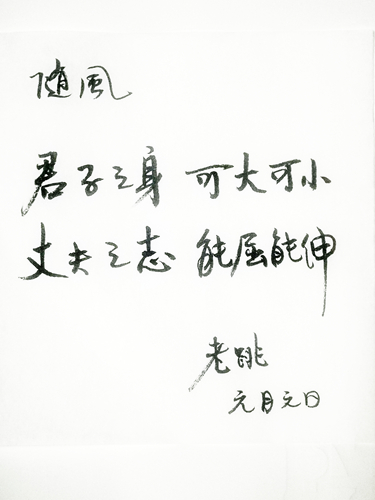 随風
君子之身 可大可小
丈夫之志 能屈能伸
老跳
元月元日